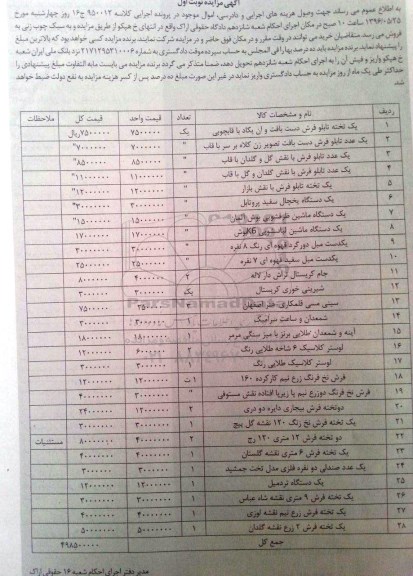 آگهی مزایده نوبت اول
به اطلاع عموم می رساند جهت وصول هزینه های اجرایی و دادرسی، اموال موجود در پرونده اجرایی کلاسه ۹۵۰۰۱۲ ج۱۶ روز چهارشنبه مورخ
۱۳۹۶/۰۵/۲۵ ساعت ۱۰ صبح در مکان اجرای احکام شعبه شانزدهم دادگاه حقوقی اراک واقع در انتهای خ هپکو از طریق مزایده و به سبک چوب زنی به
فروش می رسد. متقاضیان خرید می توانند در وقت مقرر و در مکان فوق حاضر و در مزایده شرکت نمایند. برنده مزایده کسی خواهد بود که بالاترین مبلغ
را پیشنهاد نماید. برنده مزایده باید ده درصد بها را فی المجلس به حساب سپرده موقت دادگستری به شماره ۲۱۷۱۲۹۵۳۱۰۰۰۶ نزد بانک ملی ایران شعبه
خ هپکو واریز و فیش آن را به اجرای احکام شعبه شانزدهم تحویل دهد، ضمنا متذکر می گردد برنده مزایده می بایست مابه التفاوت مبلغ پیشنهادی را
حداکثر طی یک ماه از روز مزایده به حساب دادگستری واریز نماید در غیر این صورت مبلغ ده درصد پس از کسر هزینه مزایده به نفع دولت ضبط خواهد
شد.
ردیف نام و مشخصات کالا تعداد قیمت واحد قیمت کل ملاحظات
۱ یک تخته تابلو فرش دست بافت و ان یکاد با قابچوبی یک ۷۵۰۰۰۰۰ ۷۵۰۰۰۰۰ریال
۲ یک عدد تابلو فرش دست بافت تصویر زن کلاه بر سر با قاب " ۷۰۰۰۰۰۰ ۷۰۰۰۰۰۰"
۳ یک عدد تابلو فرش با نقش گل و گلدان با قاب " ۸۵۰۰۰۰۰ ۸۵۰۰۰۰۰"
۴ یک عدد تابلو فرش با نقش گلدان و گل با قاب " ۱۱۰۰۰۰۰۰ ۱۱۰۰۰۰۰۰"
۵ یک تخته تابلو فرش با نقش بازار " ۱۲۰۰۰۰۰۰ ۱۲۰۰۰۰۰۰"
۶ یک دستگاه یخچال سفید پروفایل " ۳۰۰۰۰۰۰۰ ۳۰۰۰۰۰۰۰"
۷ یک دستگاه ماشین ظرفشویی بوش آلمان " ۱۵۰۰۰۰۰۰ ۱۵۰۰۰۰۰۰"
۸ یک دستگاه ماشین لباسشویی بوش " ۱۷۰۰۰۰۰۰ ۱۷۰۰۰۰۰۰
۹ یکدست مبل دورکرد قهوه ای رنگ ۸ نفره " ۳۰۰۰۰۰۰۰ ۳۰۰۰۰۰۰۰
۱۰ یکدست مبل سفید قهوه ای ۷ نفره " ۲۵۰۰۰۰۰۰ ۲۵۰۰۰۰۰۰
۱۱ جام کریستال تراش دار لاله ۲ ۴۰۰۰۰۰۰ ۸۰۰۰۰۰۰
۱۲ شیرینی خوری کریستال یک ۳۰۰۰۰۰۰ ۳۰۰۰۰۰۰
۱۳ سینی مسی قلمکاری هنر اصفهان
۱۴ شمعدان و ساعت سرامیک ۱ ۳۰۰۰۰۰۰ ۳۰۰۰۰۰۰
۱۵ آینه و شمعدان طلایی برنز با میز سنگی مرمر ۱ ۱۸۰۰۰۰۰۰ ۱۸۰۰۰۰۰۰
۱۶ لوستر کلاسیک ۶ شاخه طلایی رنگ ۲ ۶۰۰۰۰۰۰ ۱۲۰۰۰۰۰۰
۱۷ لوستر کلاسیک طلایی رنگ ۱
۱۸ فرش نخ فرنگ زرع نیم کارکرده ۱۶۰ ۱ت ۱۲۰۰۰۰۰۰ ۱۲۰۰۰۰۰۰
۱۹ فرش نخ فرنگ دوزرع نیم پا زیرپا افتاده نقش مستوفی
۲۰ دوتخته فرش بیجاری دایره دو دری ۲ ۱۲۰۰۰۰۰۰ ۲۴۰۰۰۰۰۰
۲۱ یک تخته فرش نخ رنگ ۱۲۰ نقشه گل پیچ ۱
۲۲ دو تخته فرش ۱۲ متری ۱۲۰ رج ۲ ۴۰۰۰۰۰۰۰ ۸۰۰۰۰۰۰۰ مستثنیات
۲۳ یک تخته فرش ۶ متری نقشه گلستان ۱
۲۴ یک عدد صندلی دو نفره فلزی مدل تخت جمشید ۱ ۳۰۰۰۰۰۰ ۳۰۰۰۰۰۰
۲۵ یک دستگاه تردمیل ۱ ۱۲۰۰۰۰۰۰ ۱۲۰۰۰۰۰۰
۲۶ یک تخته فرش ۹ متری نقشه شاه عباس ۱
۲۷ یک تخته فرش زرع نیم نقشه لوزی ۱
۲۸ یک تخته فرش ۲ زرع نقشه گلدان ۱
جمع کل ۴۹۸۵۰۰۰۰۰
مدیر دفتر اجرای احکام شعبه ۱۶ حقوقی اراک